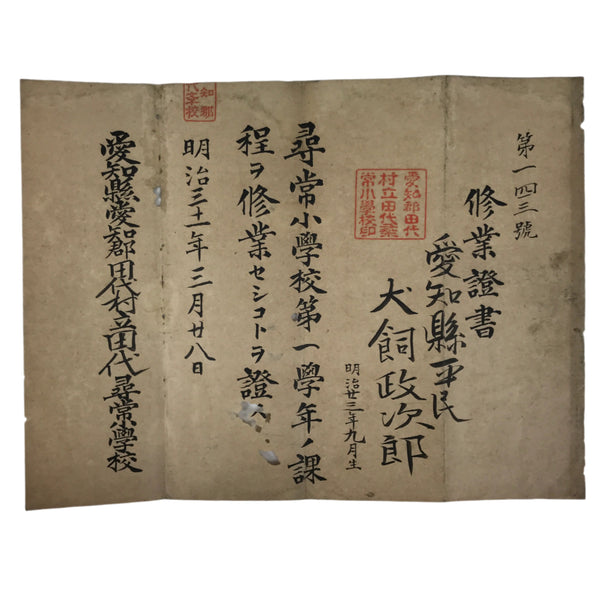 第一四三號
修業證書
愛知縣平民
犬飼政次郎
明治廿三年九月生
愛知郡田代
村立田代尋
常小學校印
尋常小學校第一學年ノ課
程ヲ修業セシコトヲ證ス
明治三十一年三月廿八日
愛知縣愛知郡田代村立田代尋常小學校